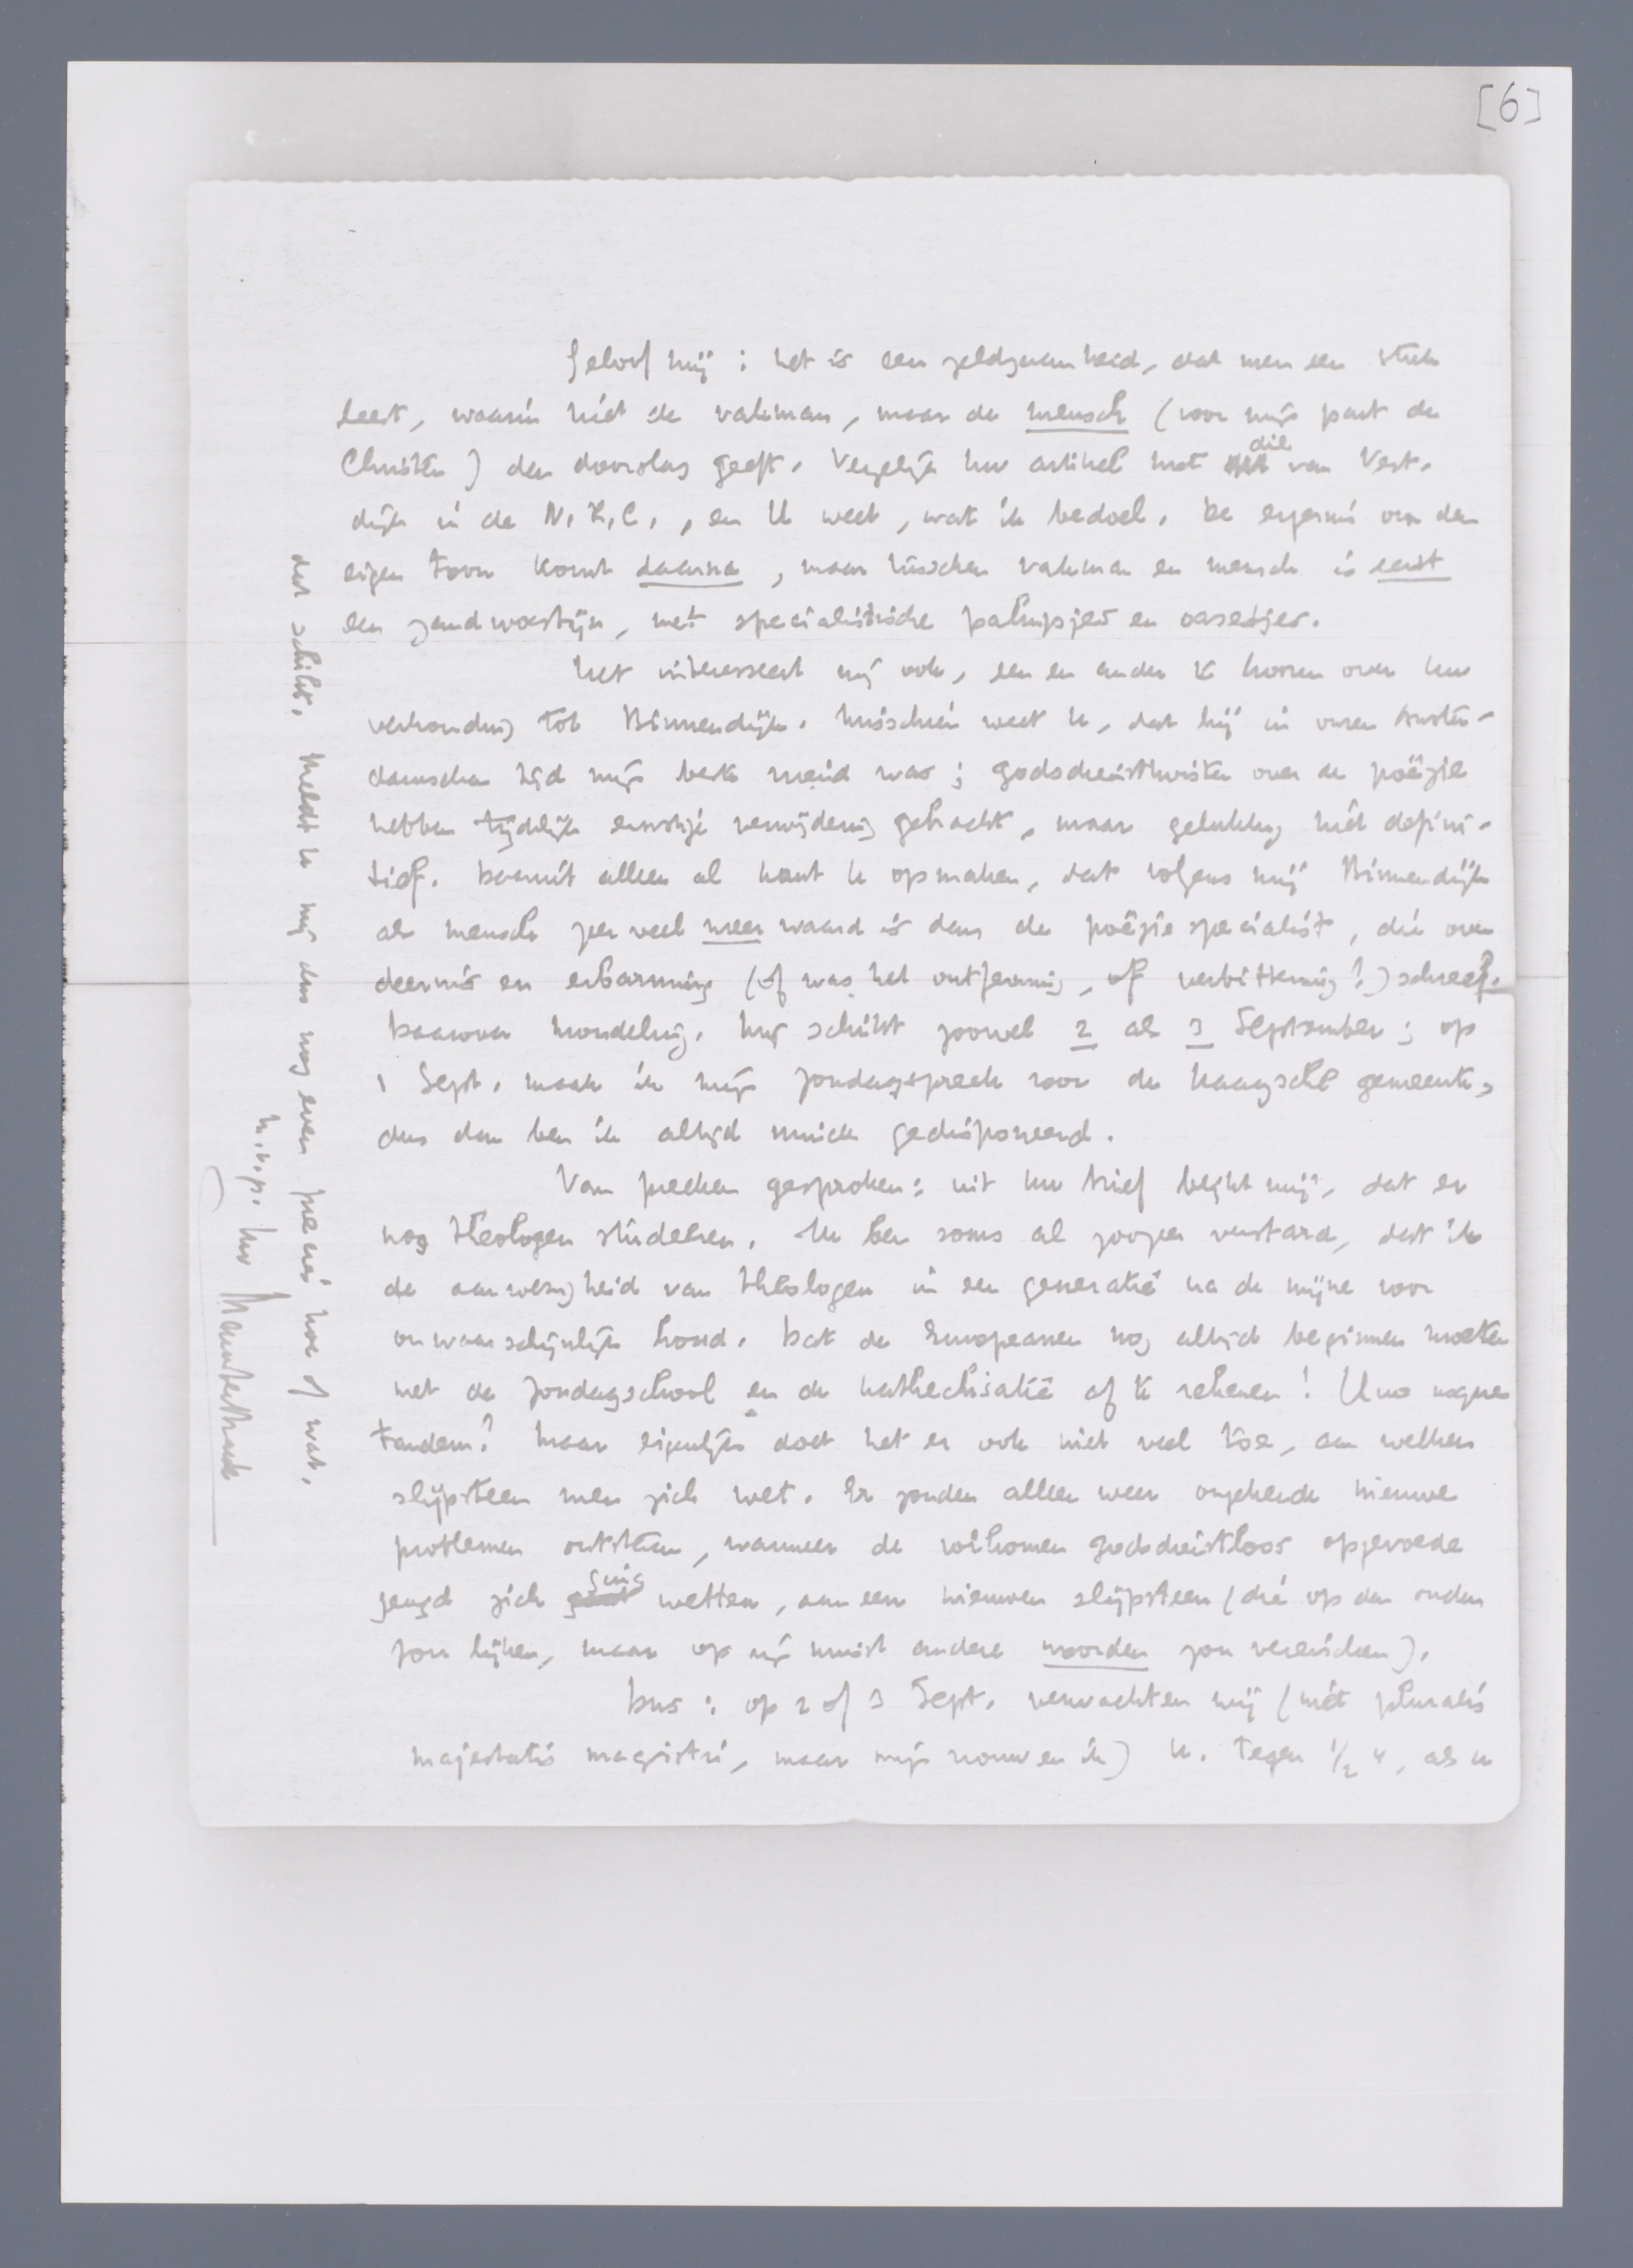 [6]
Geloof mij: het is een zeldzaamheid, dat men een stuk
leest, waarin niet de vakman, maar de mensch (voor mijn part de
Christen) den doorslag geeft. Vergelijk Uw artikel met die van Vest-
dijk in de N.R.C., en U weet, wat ik bedoel. De ergernis over den
eigen toon komt daarna, maar tusschen vakman en mensch is eerst
een zandwoestijn, met specialistische palmpjes en oasetjes.
Het interesseert mij ook, een en ander te hooren over Uw
verhouding tot Binnendijk. Misschien weet U, dat hij in onzen Amster-
damschen tijd mijn beste vriend was; godsdiensttwisten over de poëzie
hebben tijdelijk ernstige verwijdering gebracht, maar gelukkig niet defini-
tief. Daaruit alleen al kunt U opmaken, dat volgens mij Binnendijk
als mensch zeer veel meer waard is dan de poëziespecialist, die over
deernis en erbarming (of was het ontferming, of verbittering?) schreef.
Daarover mondeling. Mij schikt zoowel 2 als 3 September; op
1 Sept. maak ik mijn zondagspreek voor de Haagsche gemeente,
dus dan ben ik altijd minder gedisponeerd.
Van preeken gesproken: uit Uw brief blijkt mij, dat er
nog theologen studeeren. Ik ben soms al zoozeer verstard, dat ik
de aanwezigheid van theologen in een generatie na de mijne voor
onwaarschijnlijk houd. Dat de Europeanen nog altijd beginnen moeten
met de zondagschool en de kathechisatie af te rekenen! Quo usque
tandem? Maar eigenlijk doet het er ook niet veel toe, aan welken
slijpsteen men zich wet. Er zouden alleen weer ongekende nieuwe
problemen ontstaan, wanneer de volkomen godsdienstloos opgevoede
jeugd zich ging wetten, aan een nieuwen slijpsteen (die op den ouden
zou lijken, maar op zijn minst andere woorden zou vereischen).
Dus: op 2 of 3 Sept. verwachten wij (niet pluralis
majestatis magistri, maar mijn vrouw en ik) U. Tegen 1/2 4, als U
dat schikt. Meldt U mij dus nog even precies hoe of wat.
m.v.g. Uw Menno ter Braak